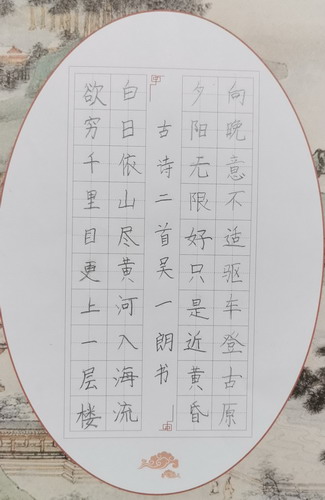 向晚意不适驱车登古原
夕阳无限好只是近黄昏
古诗二首吴一朗书
白日依山尽黄河入海流
欲穷千里目更上一层楼